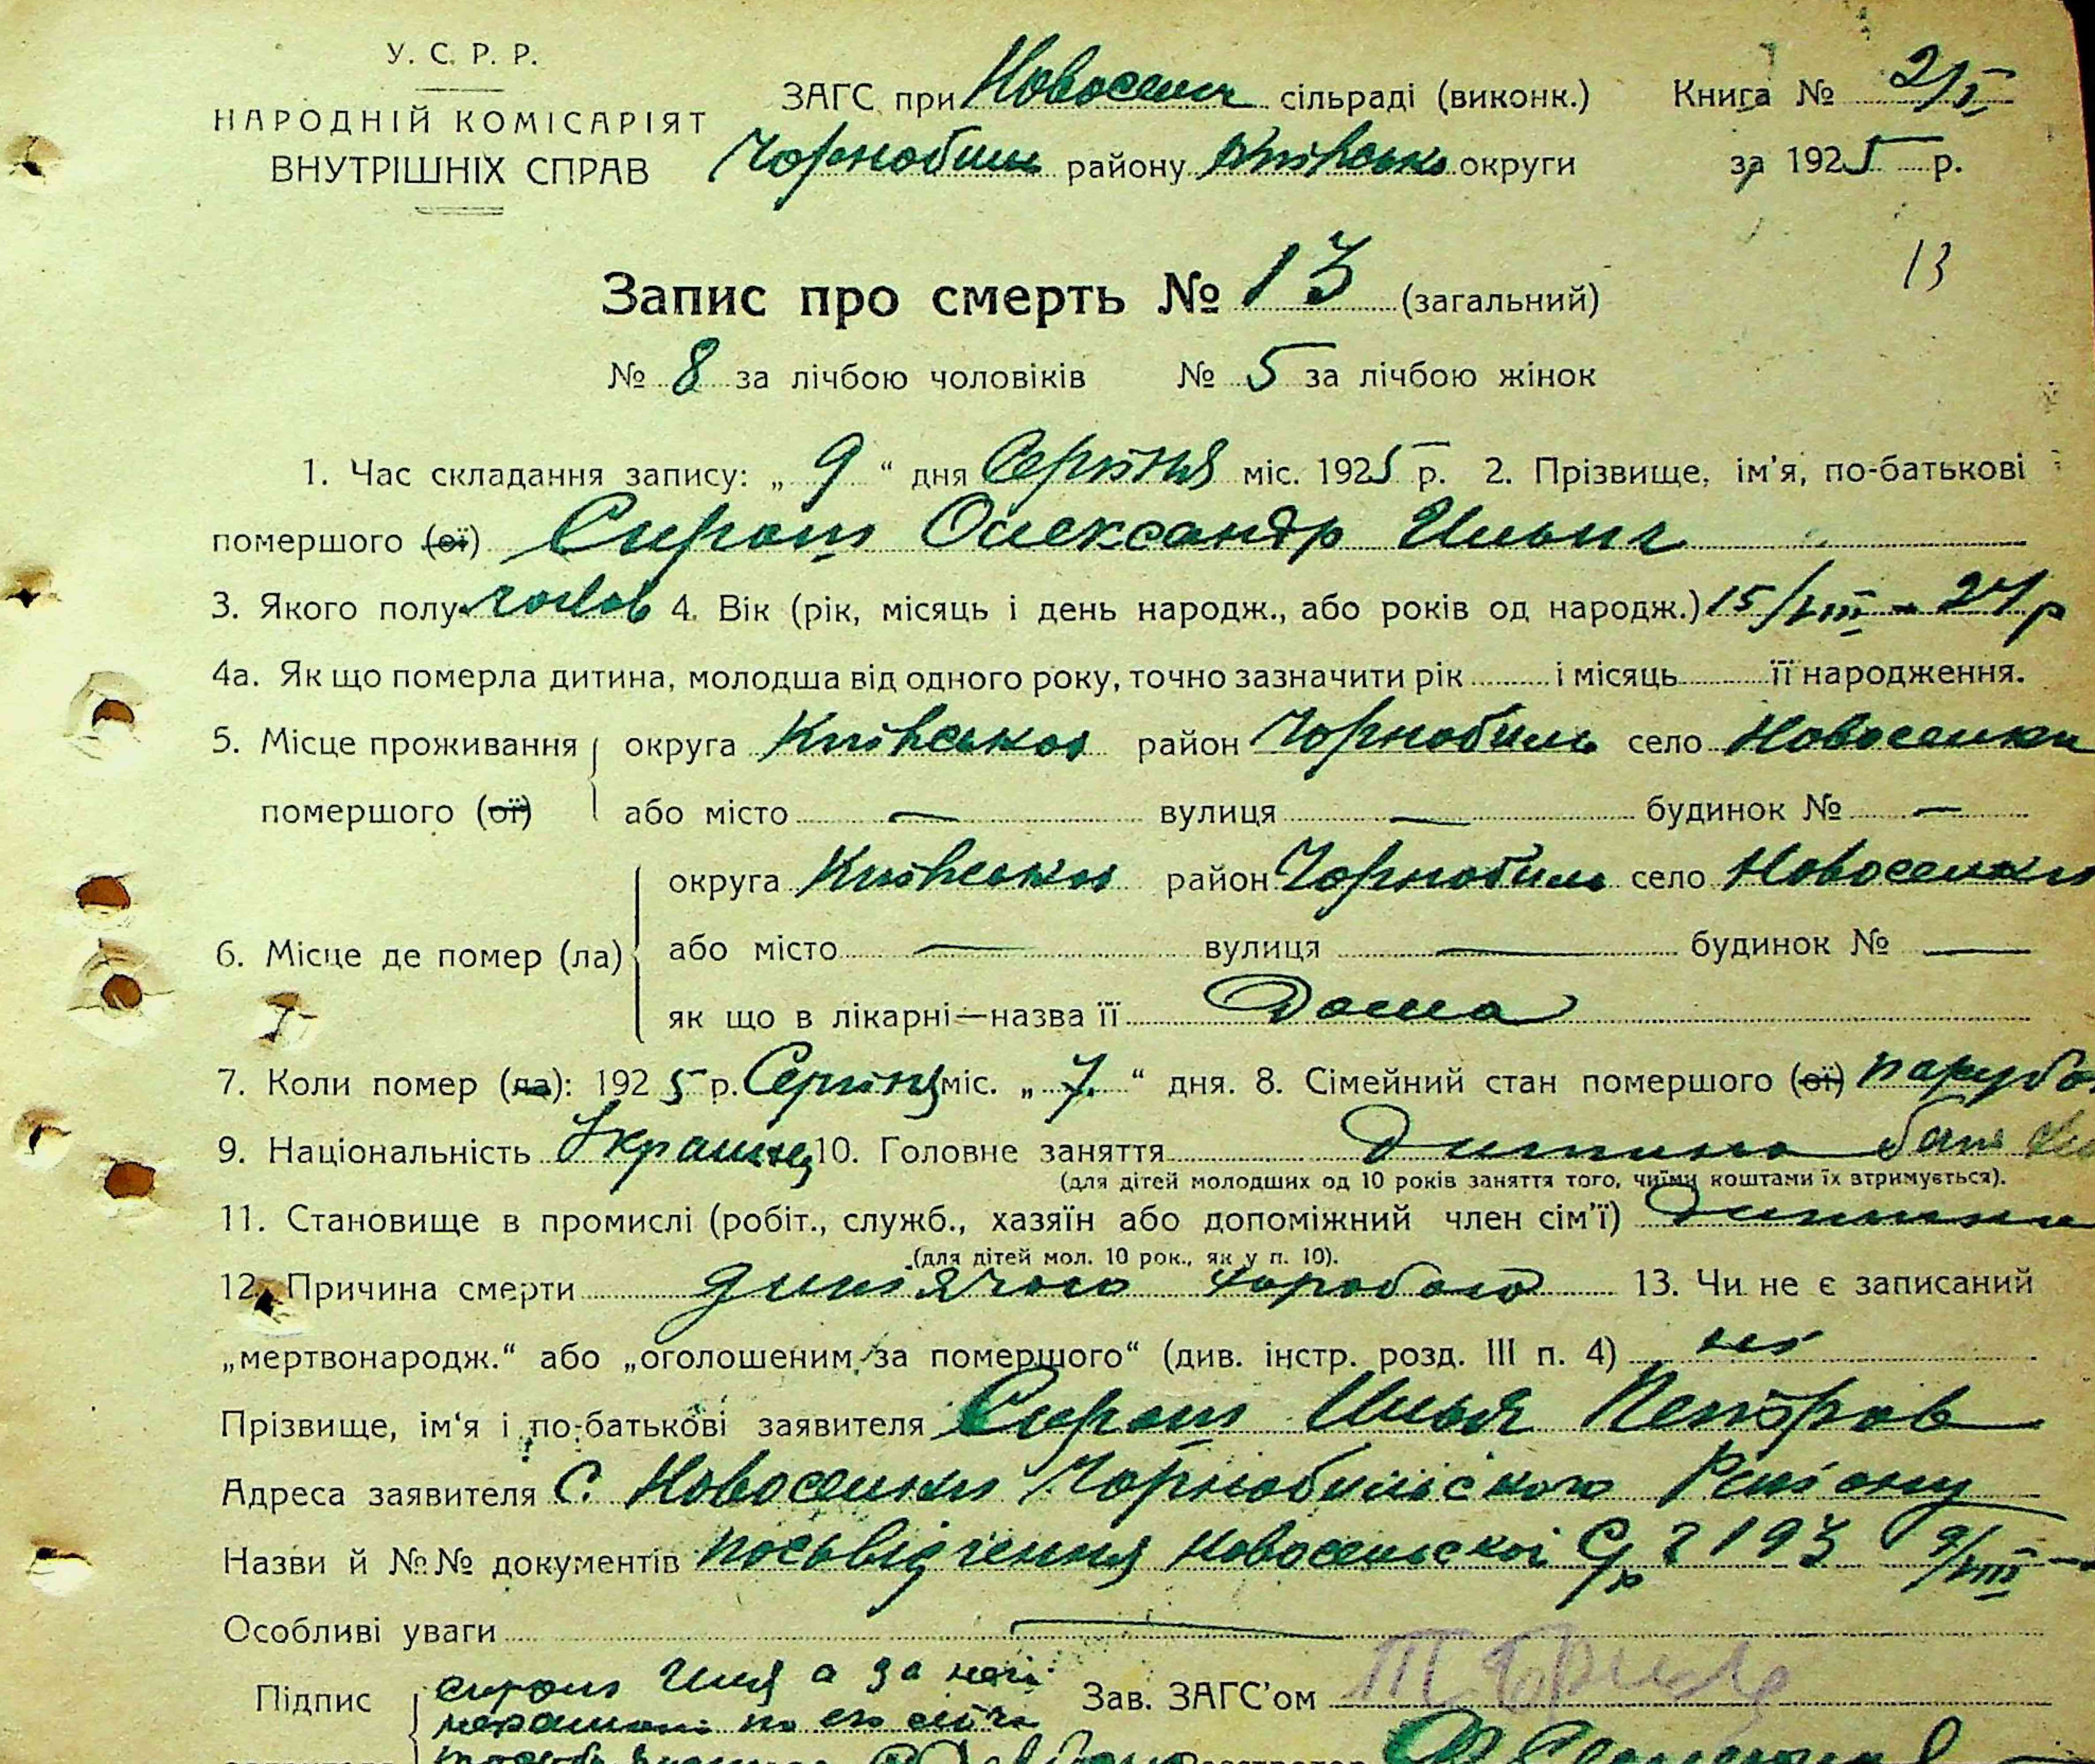 У. С. Р. Р.
НАРОДНІЙ КОМІСАРІЯТ
ВНУТРІШНІХ СПРАВ
ЗАГС при Новосельк сільраді (виконк.)
Чорнобиль району Київсько округи
Книга № 2/I
за 1925 р.
13
Запис про смерть № 13 (загальний)
№ 8 за лічбою чоловіків № 5 за лічбою жінок
1. Час складання запису: „ 9 “ дня Серпня міс. 1925 р. 2. Прізвище, ім'я, по-батькові
помершого (ої) Сирош Олександр Ильич
3. Якого полу чолов 4. Вік (рік, місяць і день народж., або років од народж.) 15/VIII - 24 р
4а. Як що померла дитина, молодша від одного року, точно зазначити рік і місяць її народження.
5. Місце проживання округа Київсько район Чорнобиль село Новоселки
помершого (ої) або місто — вулиця — будинок № —
округа Київсько район Чорнобиль село Новоселки
6. Місце де помер (ла) або місто — вулиця — будинок № —
як що в лікарні—назва її Дома
7. Коли помер (ла): 1925 р. Серпня міс. „ 7 “ дня. 8. Сімейний стан помершого (ої) парубо
9. Національність Украинец 10. Головне заняття Дитина
(для дітей молодших од 10 років заняття того, чиїми коштами їх втримується).
11. Становище в промислі (робіт., служб., хазяїн або допоміжний член сім'ї) Дитина
(для дітей мол. 10 рок., як у п. 10).
12. Причина смерти дитячою хоробою 13. Чи не є записаний
„мертвонародж.“ або „оголошеним за помершого“ (див. інстр. розд. III п. 4) ні
Прізвище, ім‘я і по-батькові заявителя Сирош Илья Петров
Адреса заявителя С. Новоселки Чорнобильського Району
Назви й №№ документів посьвідчення Новосельскої 193 9/VIII
Особливі уваги
Підпис сирош Илья а за него
Зав. ЗАГС'ом